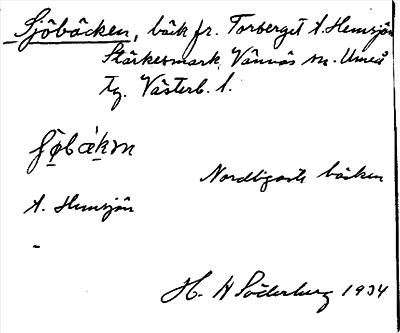 Sjöbäcken, bäck fr. Torberget t. Hemsjön
Stärkesmark, Vännäs sn. Umeå
tg. Västerb. l.
Nordligaste bäcken
t. Hemsjön
-
H. H Söderberg 1934